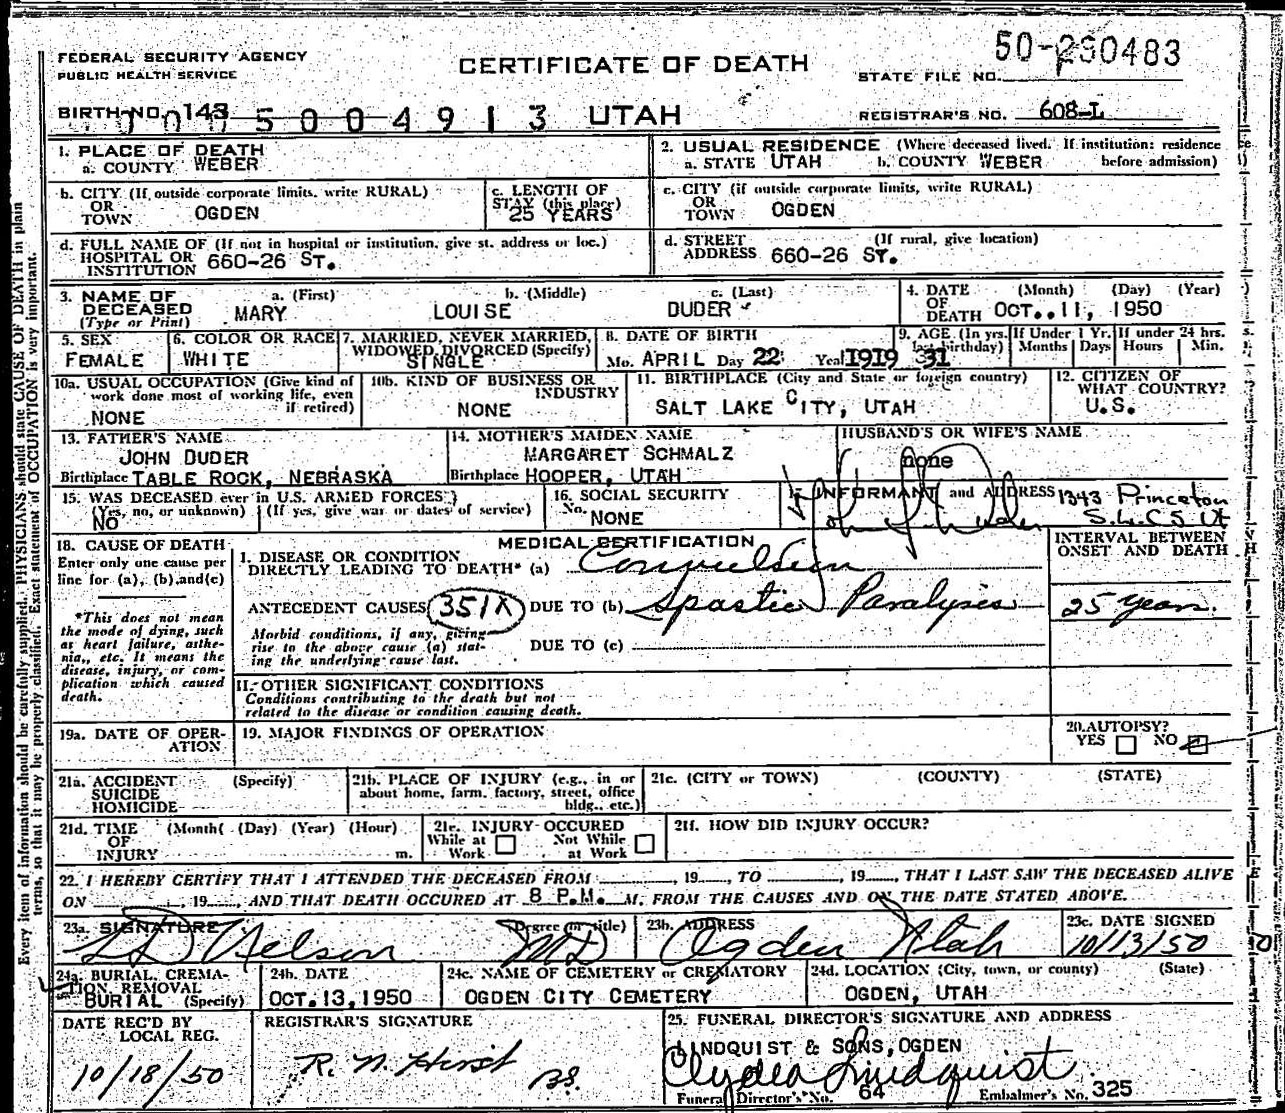 FEDERAL SECURITY AGENCY
PUBLIC HEALTH SERVICE
CERTIFICATE OF DEATH
50-260483
STATE FILE NO.
BIRTH NO. 143
5004913
UTAH
REGISTRAR'S NO. 608-L
1. PLACE OF DEATH
a. COUNTY WEBER
2. USUAL RESIDENCE (Where deceased lived. If institution: residence
a. STATE UTAH b. COUNTY WEBER before admission)
b. CITY (If outside corporate limits, write RURAL)
OR
TOWN OGDEN
c. LENGTH OF
STAY (this place)
25 YEARS
c. CITY (if outside corporate limits, write RURAL)
OR
TOWN OGDEN
d. FULL NAME OF (If not in hospital or institution, give st. address or loc.)
HOSPITAL OR
INSTITUTION 660-26 ST.
d. STREET (If rural, give location)
ADDRESS 660-26 ST.
3. NAME OF DECEASED
(Type or Print)
a. (First) b. (Middle) c. (Last)
MARY LOUISE DUDER
4. DATE (Month) (Day) (Year)
OF
DEATH OCT. 11, 1950
5. SEX
FEMALE
6. COLOR OR RACE
WHITE
7. MARRIED, NEVER MARRIED,
WIDOWED DIVORCED (Specify)
SINGLE
8. DATE OF BIRTH
Mo. APRIL Day 22 Year 1919
9. AGE (In yrs. last birthday)
31
If Under 1 Yr.
Months Days
If under 24 hrs.
Hours Min.
10a. USUAL OCCUPATION (Give kind of
work done most of working life, even
if retired)
NONE
10b. KIND OF BUSINESS OR
INDUSTRY
NONE
11. BIRTHPLACE (City and State or foreign country)
SALT LAKE CITY, UTAH
12. CITIZEN OF
WHAT COUNTRY?
U.S.
13. FATHER'S NAME
JOHN DUDER
Birthplace TABLE ROCK, NEBRASKA
14. MOTHER'S MAIDEN NAME
MARGARET SCHMALZ
Birthplace HOOPER, UTAH
HUSBAND'S OR WIFE'S NAME
none
15. WAS DECEASED ever in U.S. ARMED FORCES?
(Yes, no, or unknown) (If yes, give war or dates of service)
NO
16. SOCIAL SECURITY
No. NONE
INFORMANT and ADDRESS 1343 Princeton
S.L.C. 5 Ut
John Duder
18. CAUSE OF DEATH
Enter only one cause per
line for (a), (b) and (c)
*This does not mean
the mode of dying, such
as heart failure, asthe-
nia, etc. It means the
disease, injury, or com-
plication which caused
death.
MEDICAL CERTIFICATION
I. DISEASE OR CONDITION
DIRECTLY LEADING TO DEATH* (a) Convulsion
ANTECEDENT CAUSES 351X DUE TO (b) Spastic Paralysis
Morbid conditions, if any, giving
rise to the above cause (a) stat-
ing the underlying cause last.
DUE TO (c)
II. OTHER SIGNIFICANT CONDITIONS
Conditions contributing to the death but not
related to the disease or condition causing death.
INTERVAL BETWEEN
ONSET AND DEATH
25 years
19a. DATE OF OPER-
ATION
19. MAJOR FINDINGS OF OPERATION
20. AUTOPSY?
YES NO
21a. ACCIDENT (Specify)
SUICIDE
HOMICIDE
21b. PLACE OF INJURY (e.g., in or
about home, farm, factory, street, office
bldg., etc.)
21c. (CITY or TOWN) (COUNTY) (STATE)
21d. TIME (Month) (Day) (Year) (Hour)
OF
INJURY m.
21e. INJURY OCCURED
While at Not While
Work at Work
21f. HOW DID INJURY OCCUR?
22. I HEREBY CERTIFY THAT I ATTENDED THE DECEASED FROM , 19 , TO , 19 , THAT I LAST SAW THE DECEASED ALIVE
ON , 19 , AND THAT DEATH OCCURED AT 8 P.M. M. FROM THE CAUSES AND ON THE DATE STATED ABOVE.
23a. SIGNATURE (Degree or title)
Nelson MD
23b. ADDRESS
Ogden Utah
23c. DATE SIGNED
10/13/50
24a. BURIAL, CREMA-
TION, REMOVAL
BURIAL (Specify)
24b. DATE
OCT. 13, 1950
24c. NAME OF CEMETERY or CREMATORY
OGDEN CITY CEMETERY
24d. LOCATION (City, town, or county) (State)
OGDEN, UTAH
DATE REC'D BY
LOCAL REG.
10/18/50
REGISTRAR'S SIGNATURE
R. N. Hirst
25. FUNERAL DIRECTOR'S SIGNATURE AND ADDRESS
LINDQUIST & SONS, OGDEN
Clyde Lindquist
Funeral Director's No. 64 Embalmer's No. 325
Every item of information should be carefully supplied. PHYSICIANS should state CAUSE OF DEATH in plain
terms, so that it may be properly classified. Exact statement of OCCUPATION is very important.